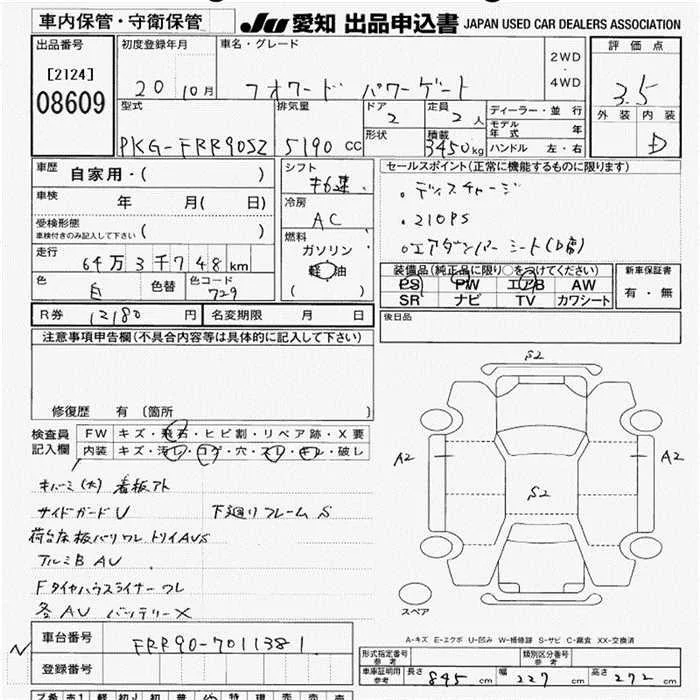 車内保管・守衛保管
JU 愛知 出品申込書 JAPAN USED CAR DEALERS ASSOCIATION
出品番号
[2124]
08609
初度登録年月
20 10月
車名・グレード
フオワード パワーゲート
2WD
・
4WD
評価点
3.5
外装 内装
D
型式
PKG-FRR90S2
排気量
5190 CC
ドア
2
定員
2人
形状
積載
3450kg
ディーラー・並行
モデル年式 年
ハンドル 左・右
車歴
自家用・( )
車検
年 月( 日)
受検形態
車検付きのみ記入して下さい ( )
走行
64万3千748km
色
白
色替
色コード
729
シフト
冷房
AC
燃料
ガソリン
軽油
( )
セールスポイント(正常に機能するものに限ります)
・ディスチャージ
・210PS
・エアダンパーシート(D席)
装備品(純正品に限り○をつけてください)
PS PW エアB AW
SR ナビ TV カワシート
新車保証書
有・無
R券 12180 円
名変期限 月 日
後日品
注意事項申告欄(不具合内容等は具体的に記入して下さい)
修復歴 有(箇所 )
検査員
記入欄
FW キズ・飛石・ヒビ割・リペア跡・X要
内装 キズ・汚レ・コゲ・穴・スレ・キレ・破レ
キバミ(大) 看板アト
サイドガードU 下廻りフレームS
荷台床板バリワレ トリイAUS
アルミB AU
Fタイヤハウスライナーワレ
各AU バッテリーX
S2
A2
A2
S2
スペア
A-キズ E-エクボ U-凹み W-補修跡 S-サビ C-腐食 XX-交換済
N
車台番号
FRR90-7011381
登録番号
形式指定番号
参考
類別区分番号
参考
車庫証明用
参考
長さ 845 cm 幅 227 cm 高さ 272 cm